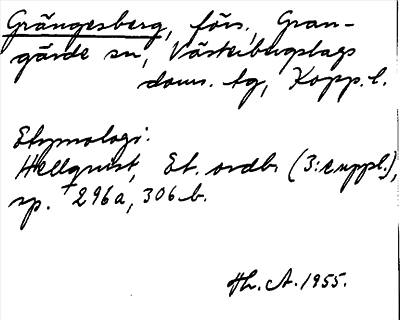 Grängesberg, förs., Gran-
gärde sn, Västerbergslags
doms. tg, Kopp. l.
Etymologi.
Hellquist, Et. ordb. (3: e uppl.),
sp. 296a, 306 b.
Th. A. 1955.